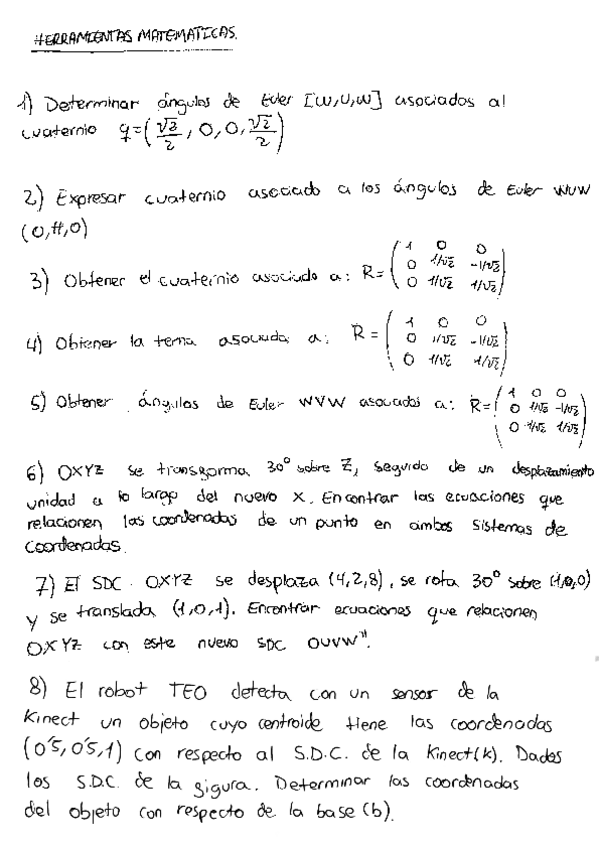 HERRAMIENTAS MATEMATICAS.
1) Determinar ángulos de Euler [W,U,W] asociados al
cuaternio q=(√2/2, 0, 0, √2/2)
2) Expresar cuaternio asociado a los ángulos de Euler WUW
(0,π,0)
3) Obtener el cuaternio asociado a: R= (1 0 0; 0 1/√2 -1/√2; 0 1/√2 1/√2)
4) Obtener la terna asociada a: R = (1 0 0; 0 1/√2 -1/√2; 0 1/√2 1/√2)
5) Obtener ángulos de Euler WVW asociados a: R= (1 0 0; 0 1/√2 -1/√2; 0 1/√2 1/√2)
6) OXYZ se transforma 30º sobre Z, seguido de un desplazamiento
unidad a lo largo del nuevo X. Encontrar las ecuaciones que
relacionen las coordenadas de un punto en ambos sistemas de
coordenadas.
7) El SDC OXYZ se desplaza (4,2,8), se rota 30º sobre (1,0,0)
y se translada (1,0,1). Encontrar ecuaciones que relacionen
OXYZ con este nuevo SDC OUVW".
8) El robot TEO detecta con un sensor de la
Kinect un objeto cuyo centroide tiene las coordenadas
(0'5, 0'5, 1) con respecto al S.D.C. de la Kinect (k). Dados
los S.D.C. de la figura. Determinar las coordenadas
del objeto con respecto de la base (b).